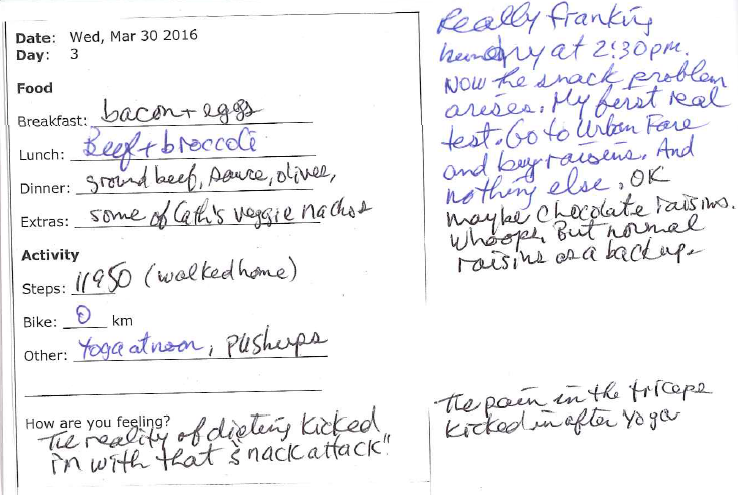 Date: Wed, Mar 30 2016
Day: 3
Food
Breakfast: bacon + eggs
Lunch: Beef + broccoli
Dinner: ground beef, sauce, olives,
Extras: some of Cath's veggie nachos
Activity
Steps: 11950 (walked home)
Bike: 0 km
Other: Yoga at noon, pushups
How are you feeling?
The reality of dieting kicked
in with that "snack attack"
Really franking
hungry at 2:30pm.
Now the snack problem
arises. My first real
test. Go to Urban Fare
and buy raisins. And
nothing else. OK
maybe chocolate raisins.
Whoops. But normal
raisins as a backup.
The pain in the triceps
kicked in after yoga